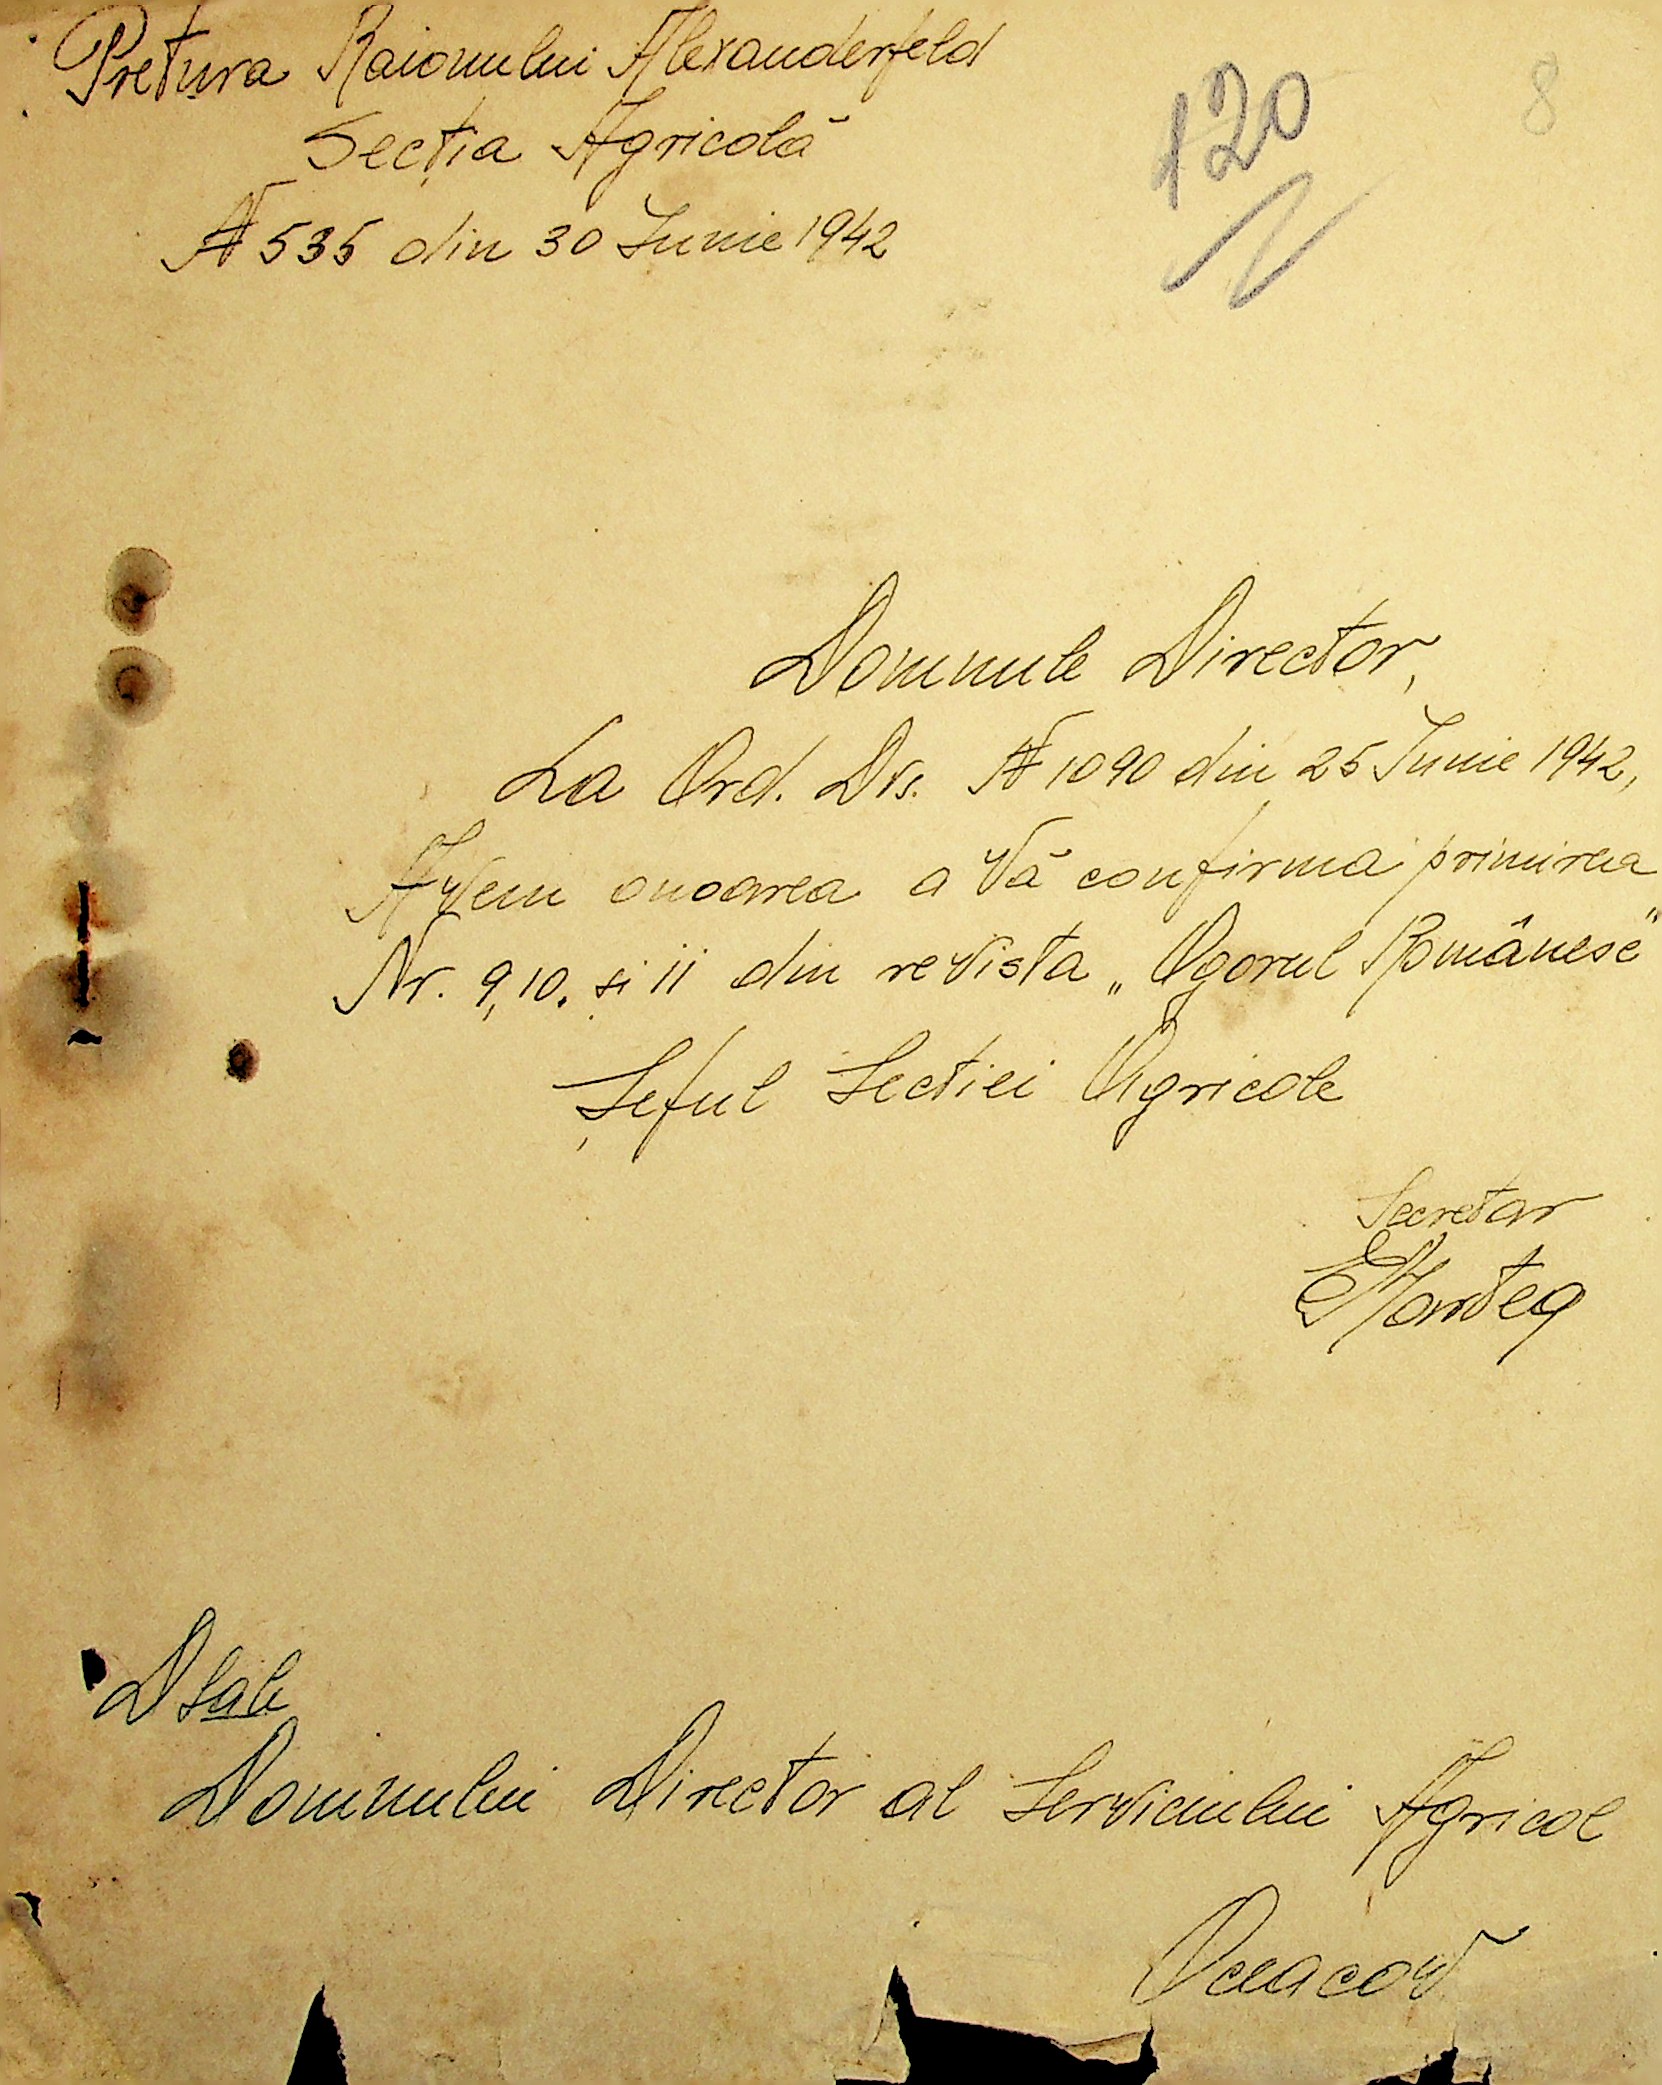 Pretura Raionului Alexanderfeld
Secția Agricolă
N 535 din 30 Iunie 1942
120
8
Domnule Director,
La Ord. Dvs. N 1090 din 25 Iunie 1942,
Avem onoarea a Vă confirma primirea
Nr. 9, 10. și 11 din revista „Ogorul Românesc"
Șeful Sectiei Agricole
Secretar
DSale
Domnului Director al Serviciului Agricol
Oceacov